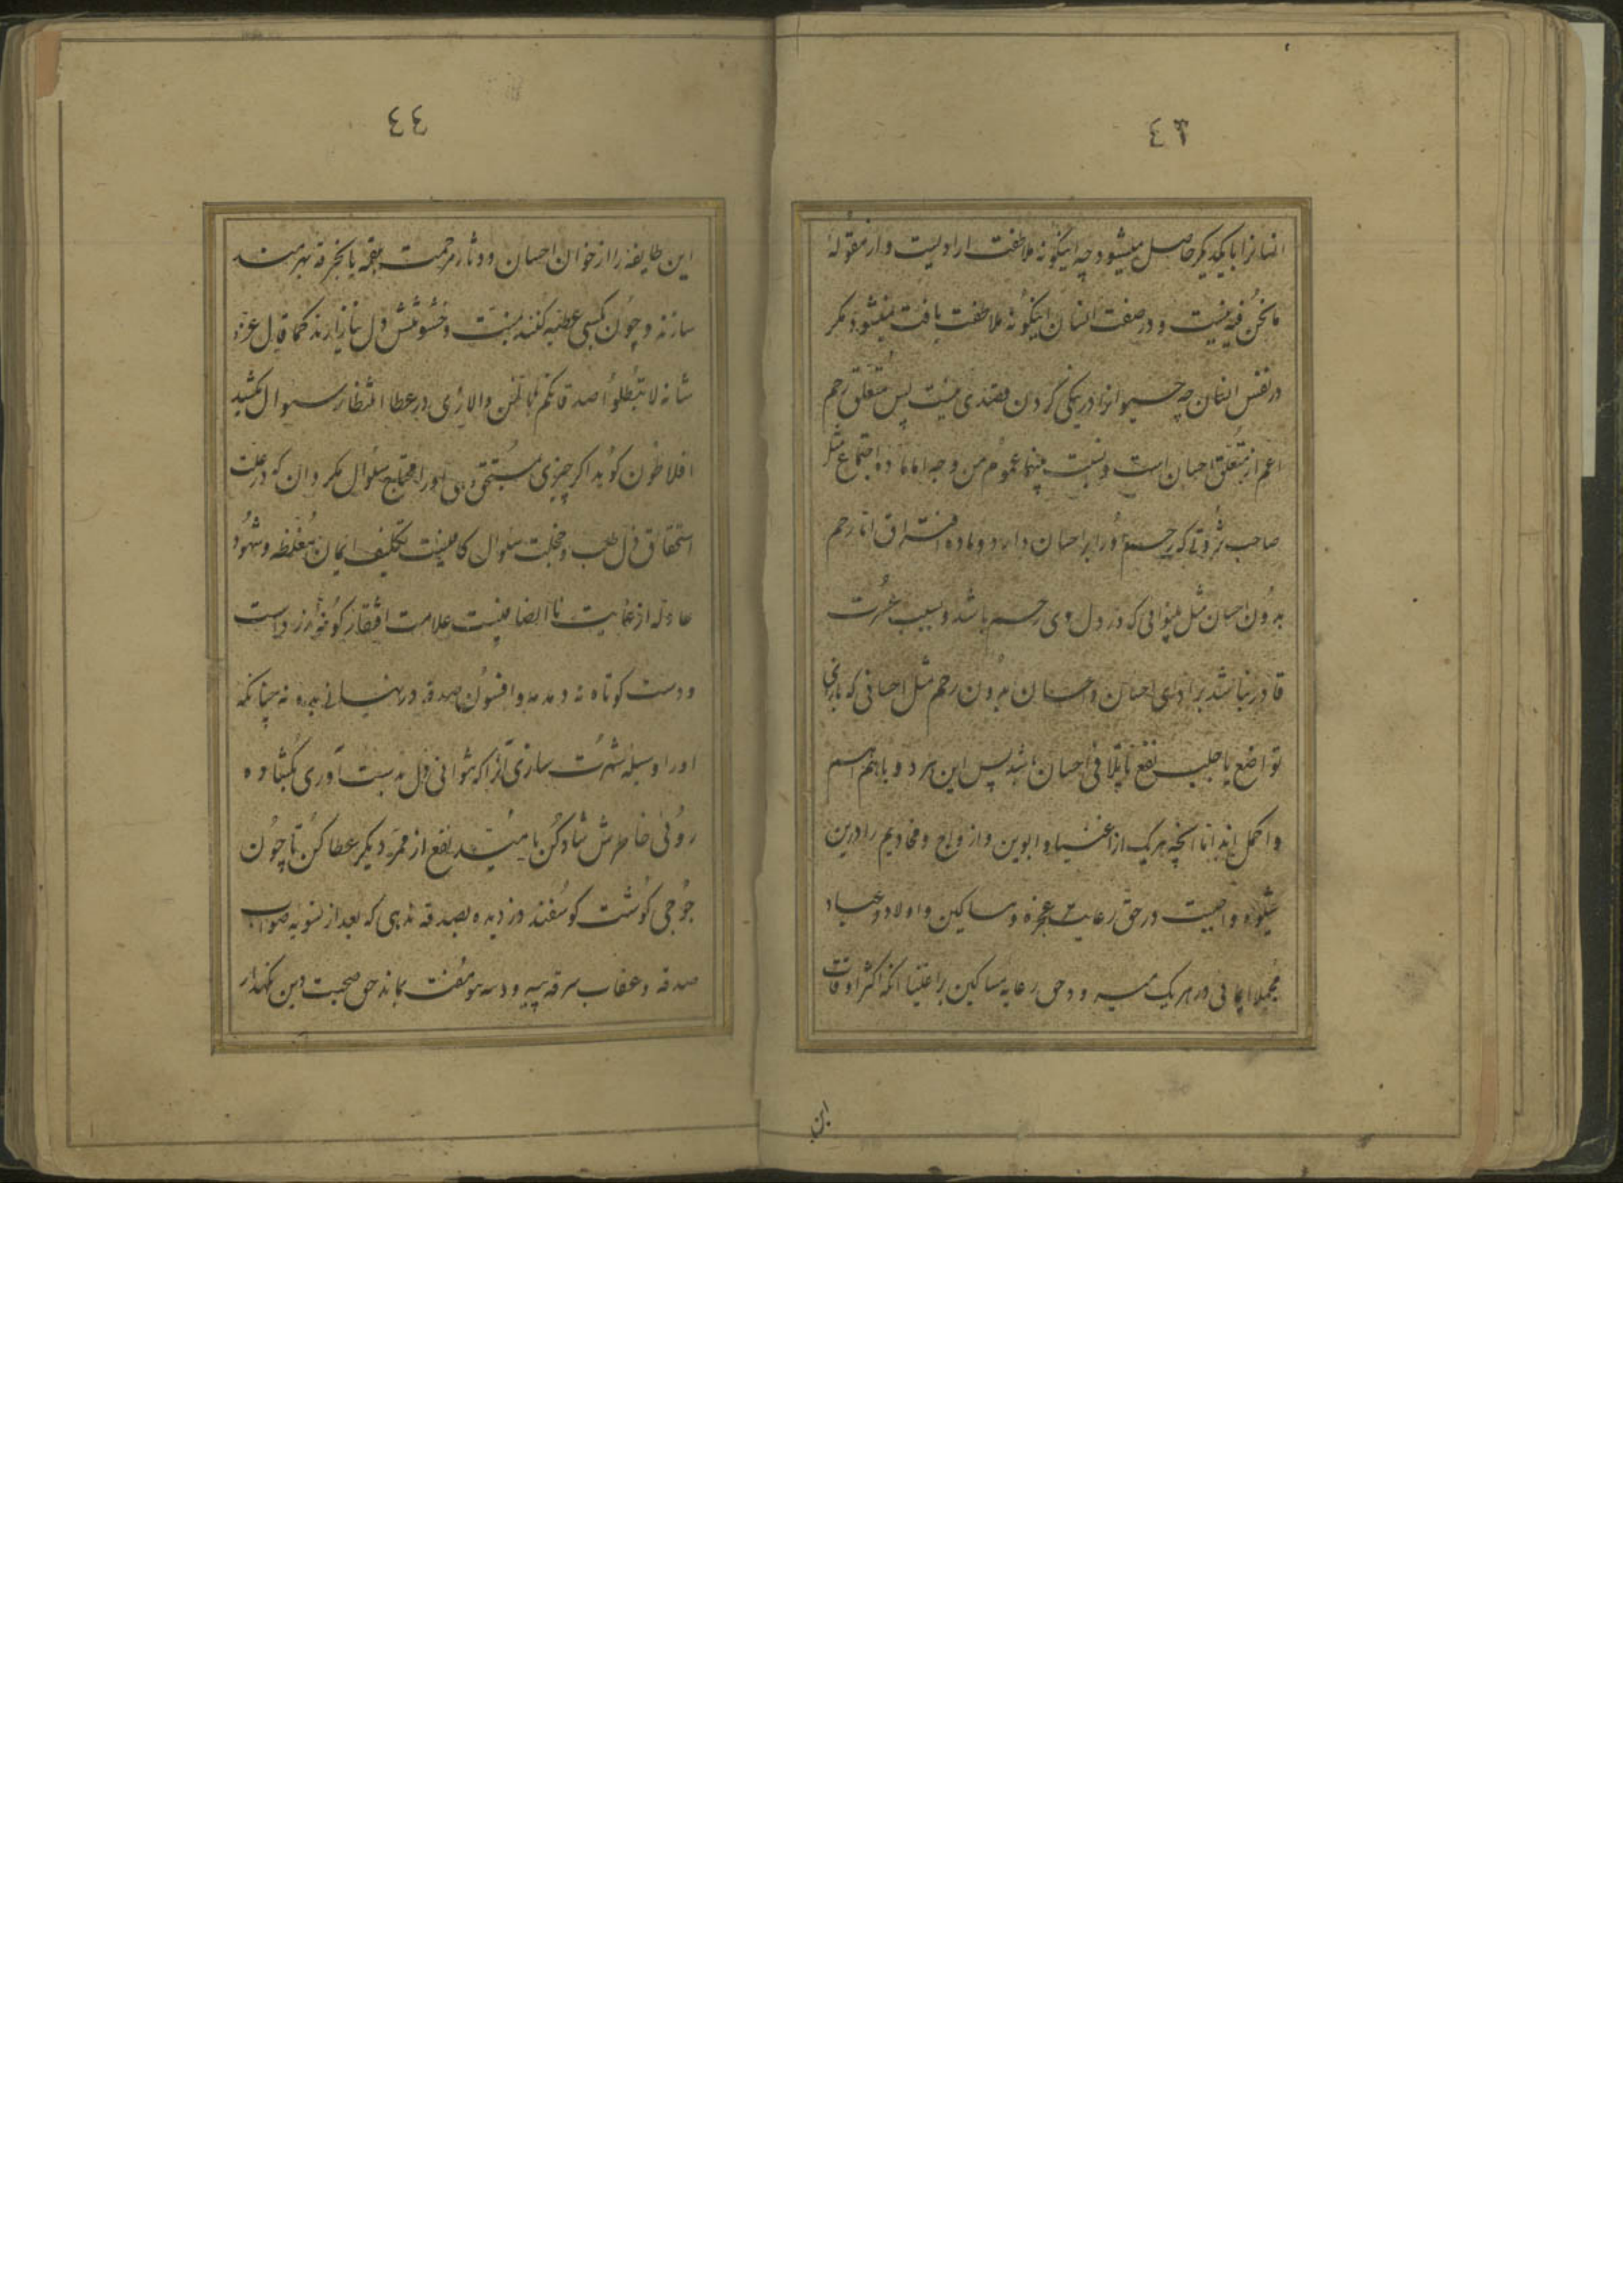 ٤٣
انسانرا با یکدیگر حاصل میشود چه اینگونه ملاطفت ارادیست و از مقوله
ما نحن فیه نیست و در صفت انسان اینگونه ملاطفت یافت نمیشود مکر
در نفس انسان چه حیوانرا در نیکی کردن قصدی نیست پس متعلق رحم
اعم از متعلق احسان است و نسبت بینهما عموم من وجه اما ماده اجتماع مثل
صاحب ثروتی که رحیم بود و احسان دارد و ماده افتراق اما رحم
بدون احسان مثل بینوائی که در دل وی رحم باشد و بسبب عسرت
قادر نباشد بر ادای احسان و احسان بدون رحم مثل احسانی که بازای
تواضع یا جلب نفع یا تلافی احسان باشد پس این هر دو باهم اتم
و اکمل اند اما آنچه هریک از اغنیا و ابوین و ازواج و مخادیم را درین
شیوه واجبست در حق رعایت عجزه و مساکین و اولاد و عباد
مجملا ایمائی در هر یک میرود و حق رعایه مساکین بر اغنیا انکه اکثر اوقات
این
٤٤
این طایفه را از خوان احسان و دثار مرحمت بلقمه یا بخرقه بهرمند
سازند و چون بکسی عطیه کنند بمنت و خشونتش دل نیازارند کما قال عز
شانه لا تبطلوا صدقاتکم بالمن والاذی در عطا انتظار سوال مکشید
افلاطون کوید اکر چیزی بمستحقی دهی او را محتاج سئوال مکردان که در علت
استحقاق ذل طلب و خجلت سئوال کافیست تکلیف ایمان مغلظه و شهود
عادله از غایت ناانصافیست علامت افتقار کونه زرد است
و دست کوتاه نه دمدمه و افسون صدقه در نهانی بده نه چنانکه
او را وسیله شهرت سازی آنرا که بتوانی دل بدست آوری بکشاده
روئی خاطرش شاد کن بامید نفع از ممر دیکر عطا کن تا چون
جوحی کوشت کوسفند دزدیده بصدقه ندهی که بعد از تسویه ثواب
صدقه و عقاب سرقه پیه و دنبه مفت بماند حق صحبت دین نکهدار